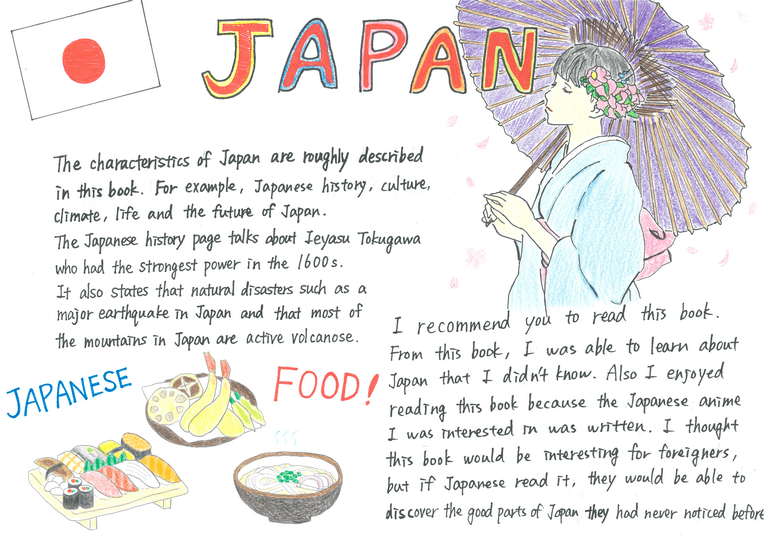 JAPAN
The characteristics of Japan are roughly described
in this book. For example, Japanese history, culture,
climate, life and the future of Japan.
The Japanese history page talks about Ieyasu Tokugawa
who had the strongest power in the 1600s.
It also states that natural disasters such as a
major earthquake in Japan and that most of
the mountains in Japan are active volcanose.
JAPANESE FOOD!
I recommend you to read this book.
From this book, I was able to learn about
Japan that I didn't know. Also I enjoyed
reading this book because the Japanese anime
I was interested in was written. I thought
this book would be interesting for foreigners,
but if Japanese read it, they would be able to
discover the good parts of Japan they had never noticed before